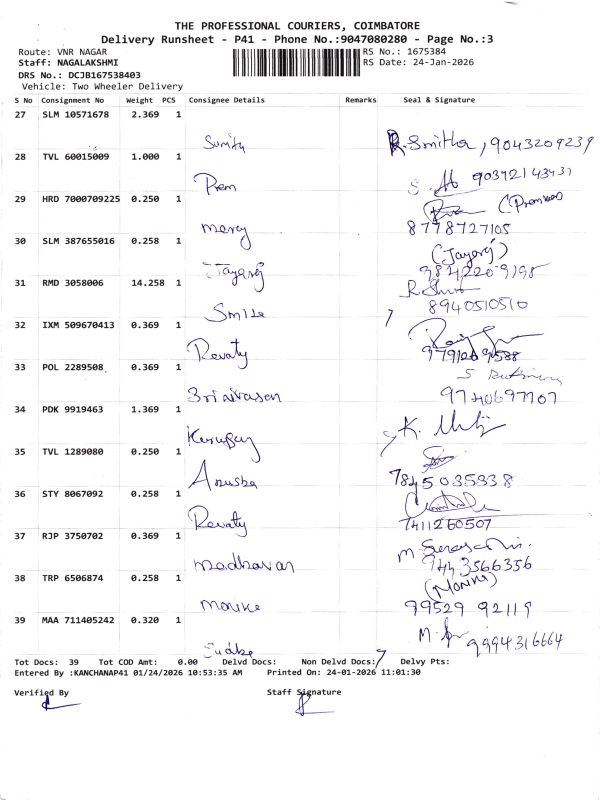 THE PROFESSIONAL COURIERS, COIMBATORE
Delivery Runsheet - P41 - Phone No.:9047080280 - Page No.:3
Route: VNR NAGAR RS No.: 1675384
Staff: NAGALAKSHMI RS Date: 24-Jan-2026
DRS No.: DCJB167538403
Vehicle: Two Wheeler Delivery
S No Consignment No Weight PCS Consignee Details Remarks Seal & Signature
27 SLM 10571678 2.369 1
Sumitu R. Smitha, 9043209239
28 TVL 60015009 1.000 1
Prem 90372143431
29 HRD 7000709225 0.250 1
mercy 8778727105
30 SLM 387655016 0.258 1
Jayaraj (Jayaraj)
9842209198
31 RMD 3058006 14.258 1
Smile 8940510510
32 IXM 509670413 0.369 1
Revaty 9791269588
33 POL 2289508 0.369 1
Srinivasan 9740697707
34 PDK 9919463 1.369 1
K.
35 TVL 1289080 0.250 1
Anusha 7845035338
36 STY 8067092 0.258 1
Revaty 7411260507
37 RJP 3750702 0.369 1
madhavan 9443566356
38 TRP 6506874 0.258 1
(Monika)
99529 92119
39 MAA 711405242 0.320 1
Sudha 9994316664
Tot Docs: 39 Tot COD Amt: 0.00 Delvd Docs: Non Delvd Docs: Delvy Pts:
Entered By :KANCHANAP41 01/24/2026 10:53:35 AM Printed On: 24-01-2026 11:01:30
Verified By Staff Signature